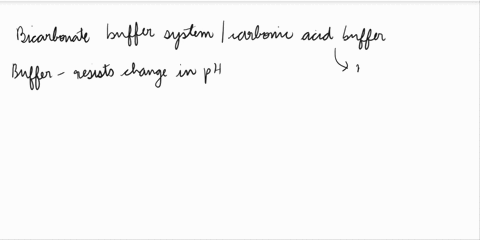 Bicarbonate buffer system / carbonic acid buffer
Buffer - resists change in pH